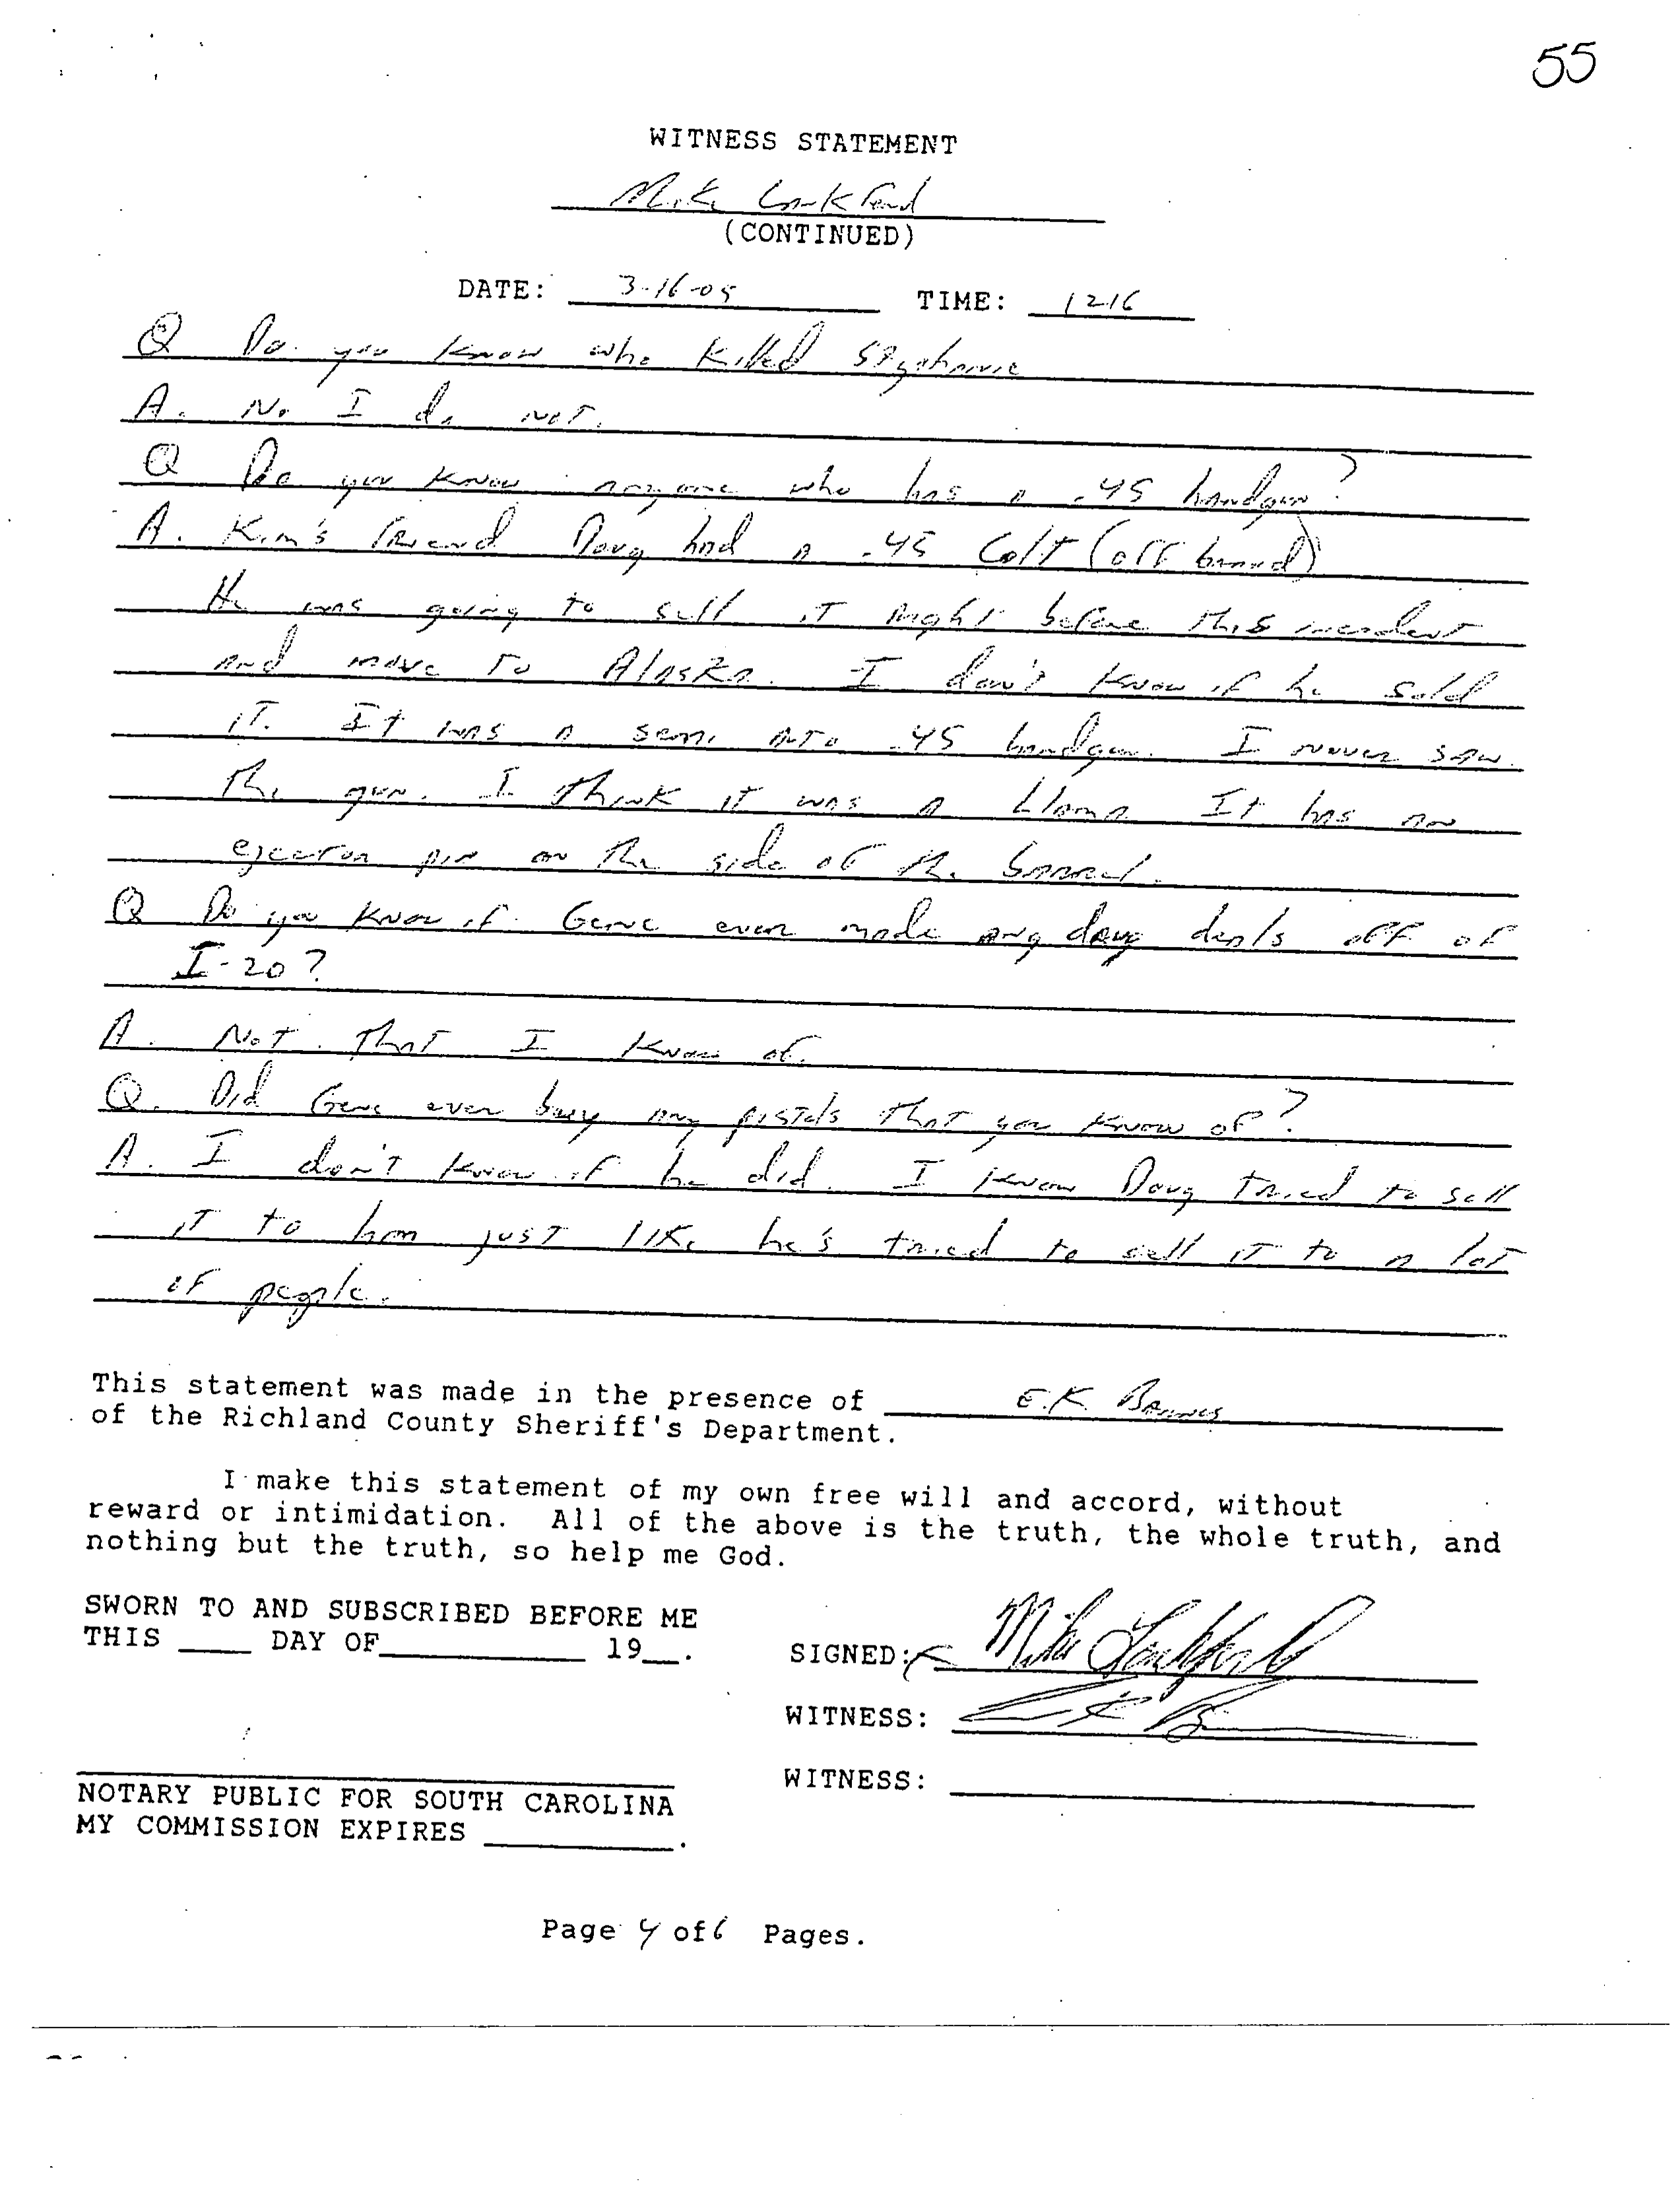 55
WITNESS STATEMENT
Mike Lankford
(CONTINUED)
DATE: 3-16-05 TIME: 1216
Q Do you know who killed Stephanie
A. No I do not.
Q Do you know anyone who has a .45 handgun?
A. Kim's friend Doug had a .45 Colt (off brand)
He was going to sell it right before this incident
and move to Alaska. I don't know if he sold
it. It was a semi auto .45 handgun. I never saw
the gun. I think it was a Llama It has an
ejector pin on the side of the barrel.
Q Do you know if Gene ever made any drug deals off of
I-20?
A. Not that I know of.
Q. Did Gene ever buy any pistols that you know of?
A. I don't know if he did. I know Doug tried to sell
it to him just like he's tried to sell it to a lot
of people.
This statement was made in the presence of E.K. Barnes
of the Richland County Sheriff's Department.
I make this statement of my own free will and accord, without
reward or intimidation. All of the above is the truth, the whole truth, and
nothing but the truth, so help me God.
SWORN TO AND SUBSCRIBED BEFORE ME
THIS ____ DAY OF___________ 19__.
SIGNED: Mike Lankford
WITNESS:
WITNESS:
NOTARY PUBLIC FOR SOUTH CAROLINA
MY COMMISSION EXPIRES __________.
Page 4 of 6 Pages.